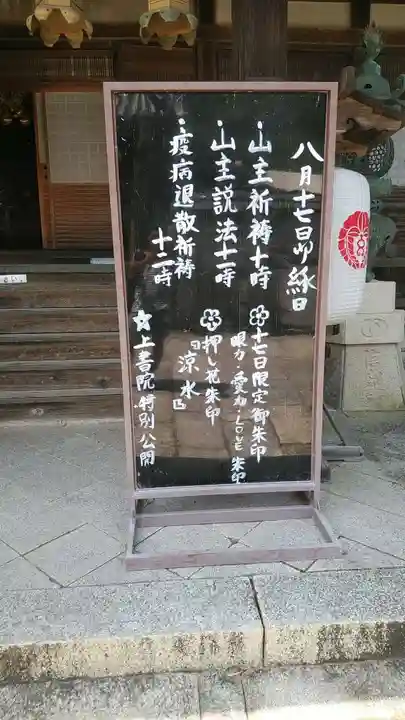 八月十七日御縁日
・山主祈祷十時
・山主説法十一時
・疫病退散祈祷
十二時
十七日限定御朱印
眼力・愛染・LOVE朱印
押し花朱印
『涼水』
☆上書院特別公開